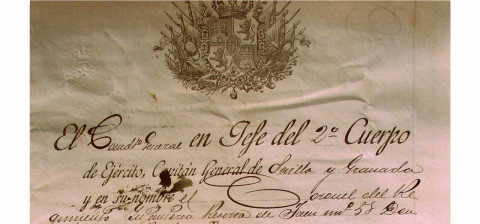 El Comdte General en Jefe del 2º Cuerpo
de Ejército, Capitán General de Sevilla y Granada
y en su nombre el Coronel del Re
gimiento Infantería Reserva de Jaen nº 58 Don